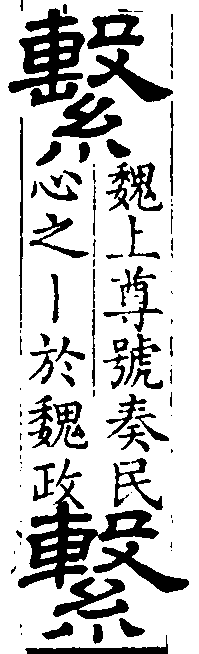 繫
魏上尊號奏民
心之丨於魏政
繫